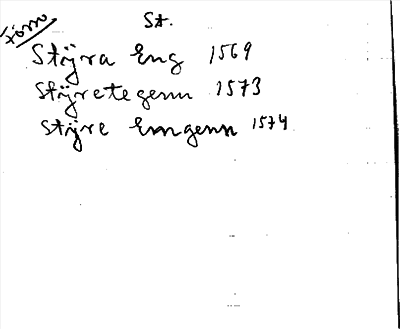 Förro
St.
Stÿra Eng 1569
Stÿrete genn 1573
Stÿre Emgenn 1574